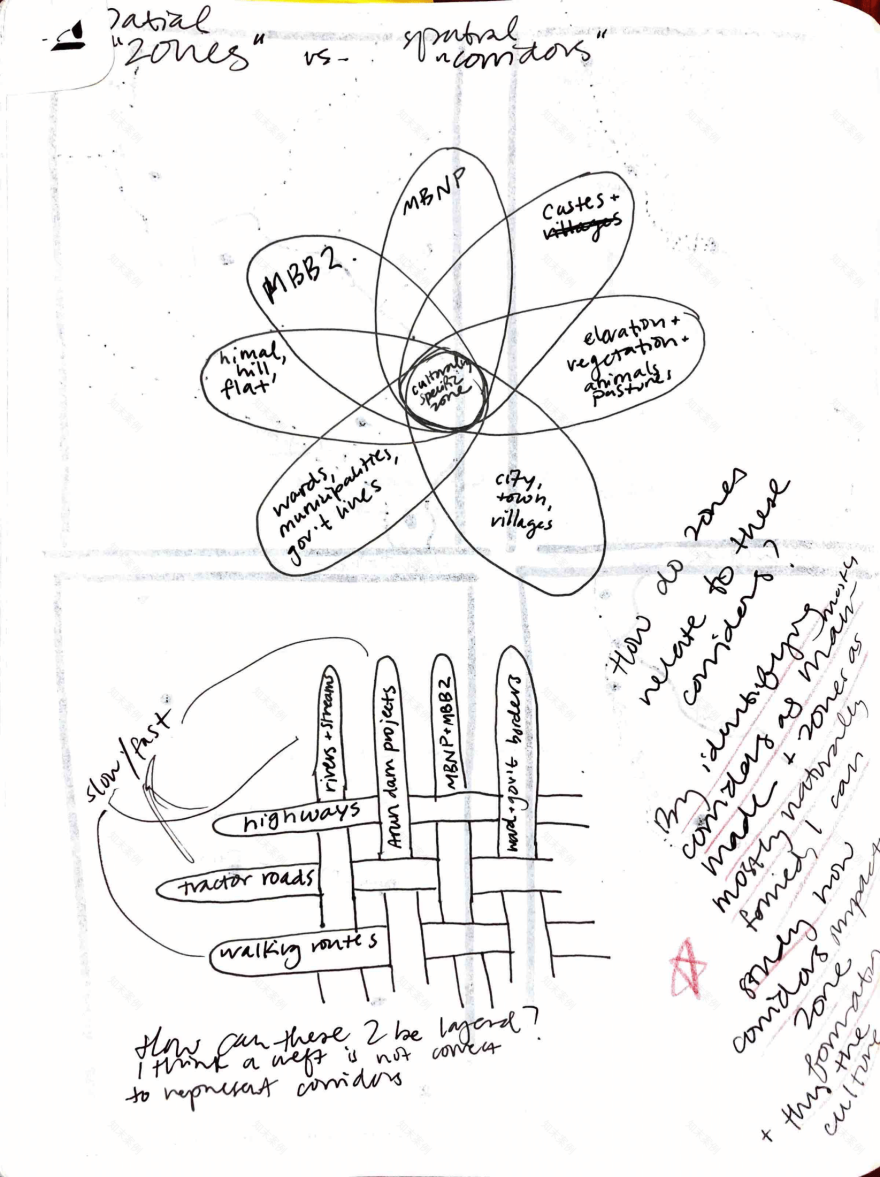 spatial
"zones" vs. spatial
"corridors"
MBNP
castes +
villages
MBBZ.
elevation +
vegetation +
animals
pastures
himal,
hill,
flat
culturally
specific
zone
wards,
municipalities,
gov't lines
city,
town,
villages
How do zones
relate to these
corridors?
By identifying mostly
corridors as man-
made + zones as
mostly naturally
formed, I can
study how
corridors impact
zone
formation
+ thus the
culture
slow/fast
rivers + streams
Arun dam projects
MBNP + MBBZ
ward + gov't borders
highways
tractor roads
walking routes
How can these 2 be layered?
I think a weft is not correct
to represent corridors